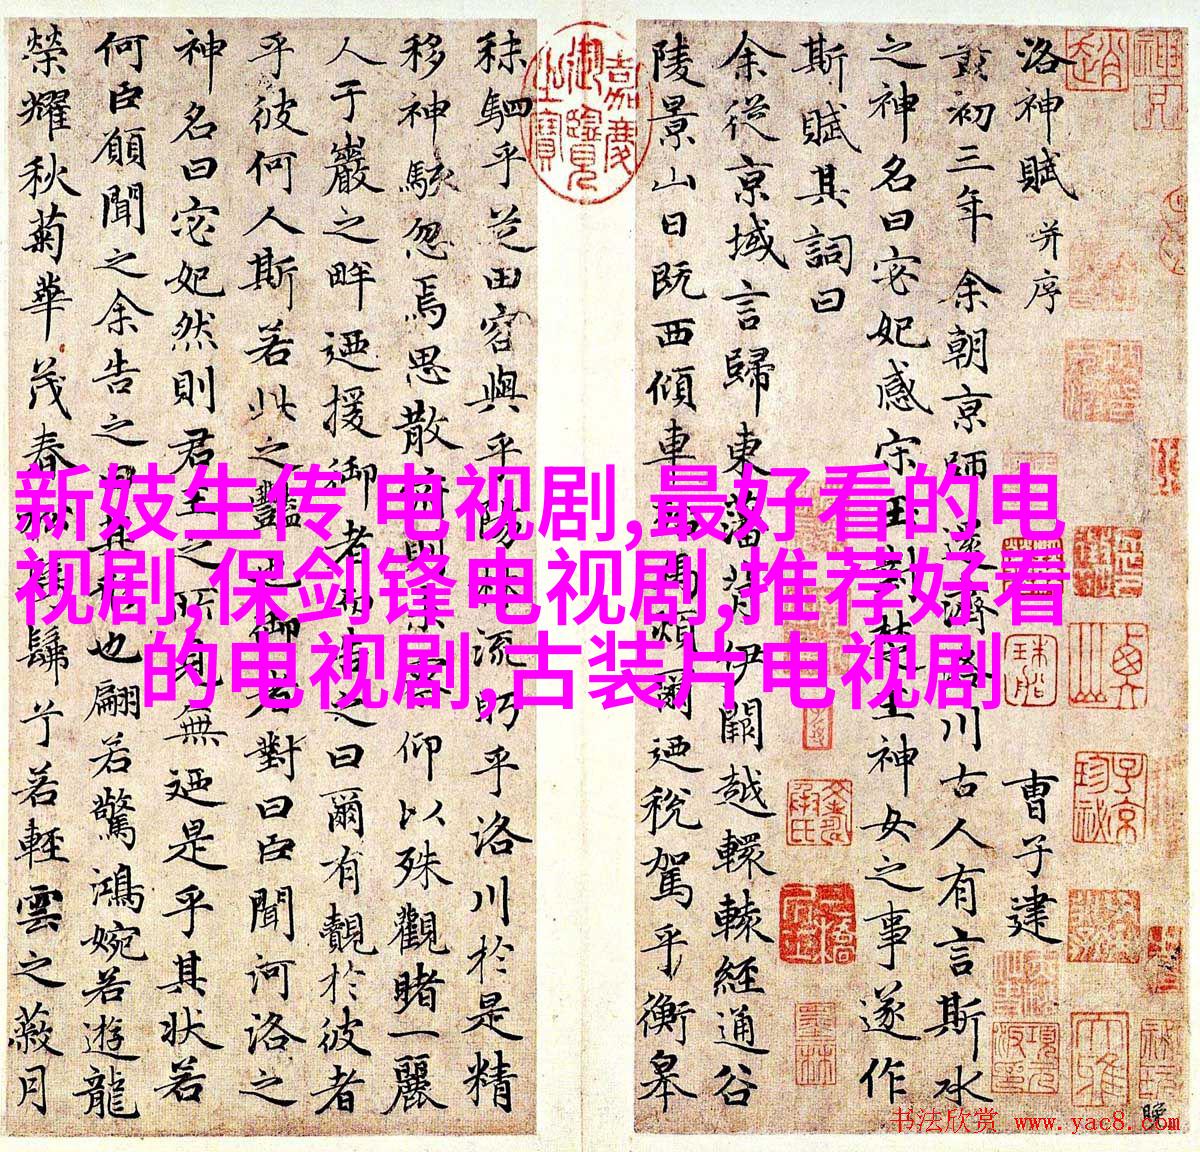 洛神賦 并序 曹子建
黃初三年余朝京師還濟洛川古人有言斯水
之神名曰宓妃感宋玉對楚王神女之事遂作
斯賦其詞曰
余從京域言歸東藩背伊闕越轘轅經通谷
陵景山日既西傾車殆馬煩爾迺稅駕乎蘅皋
秣駟乎芝田容與乎陽林流眄乎洛川於是精
移神駭忽焉思散俯則未察仰以殊觀睹一麗
人于巖之畔迺援御者而告之曰爾有覿於彼者
乎彼何人斯若此之豔也御者對曰臣聞河洛之
神名曰宓妃然則君王之所見無迺是乎其狀若
何臣願聞之余告之曰其形也翩若驚鴻婉若遊龍
榮耀秋菊華茂春松髣髴兮若輕雲之蔽月
嘉慶御覽之寶
新妓生传 电视剧,最好看的电
视剧,保剑锋电视剧,推荐好看
的电视剧,古装片电视剧
书法欣赏 www.yac8.com